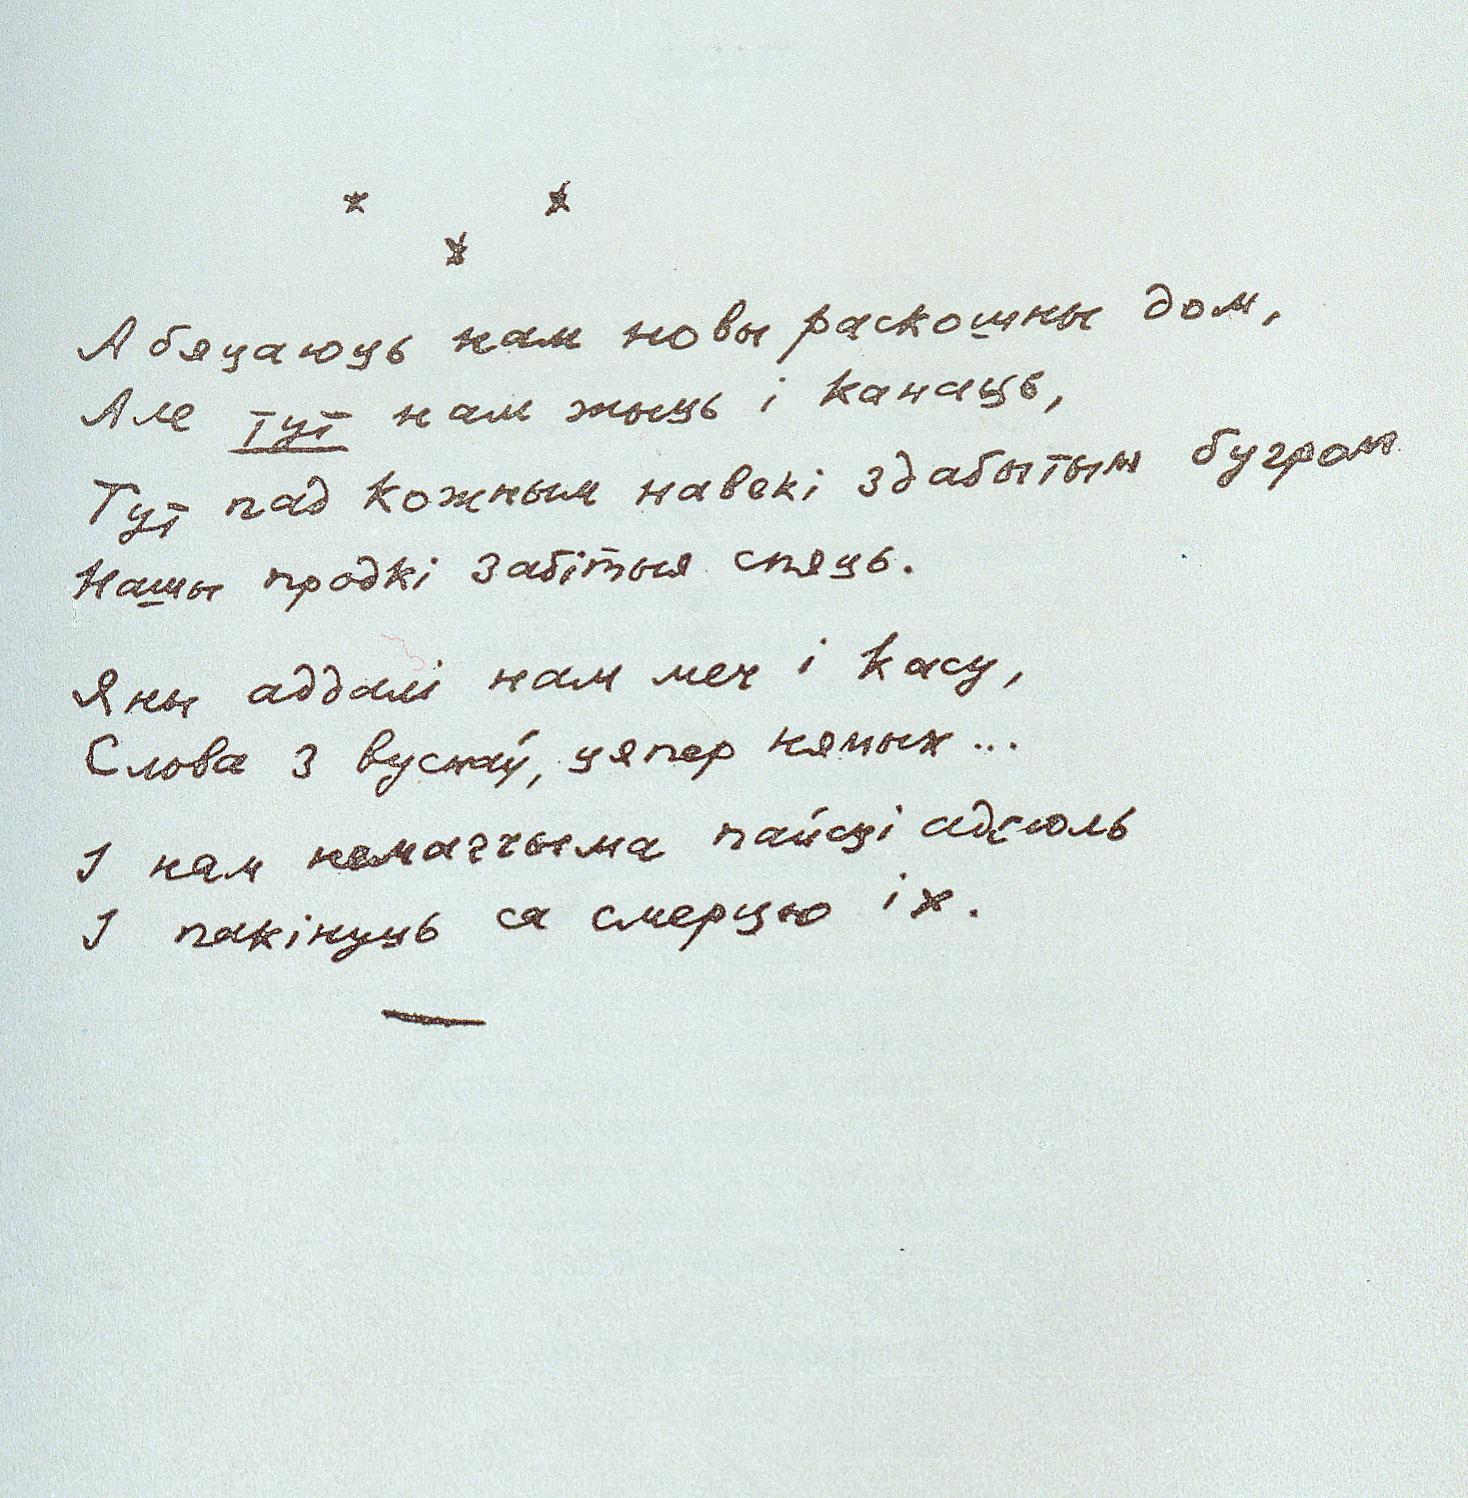 * *
*
Абяцаюць нам новы раскошны дом,
Але тут нам жыць і канаць,
Тут пад кожным навекі здабытым бугром
Нашы продкі забітыя спяць.
Яны аддалі нам меч і касу,
Слова з вуснаў, цяпер нямых...
І нам немагчыма пайсці адсюль
І пакінуць са смерцю іх.